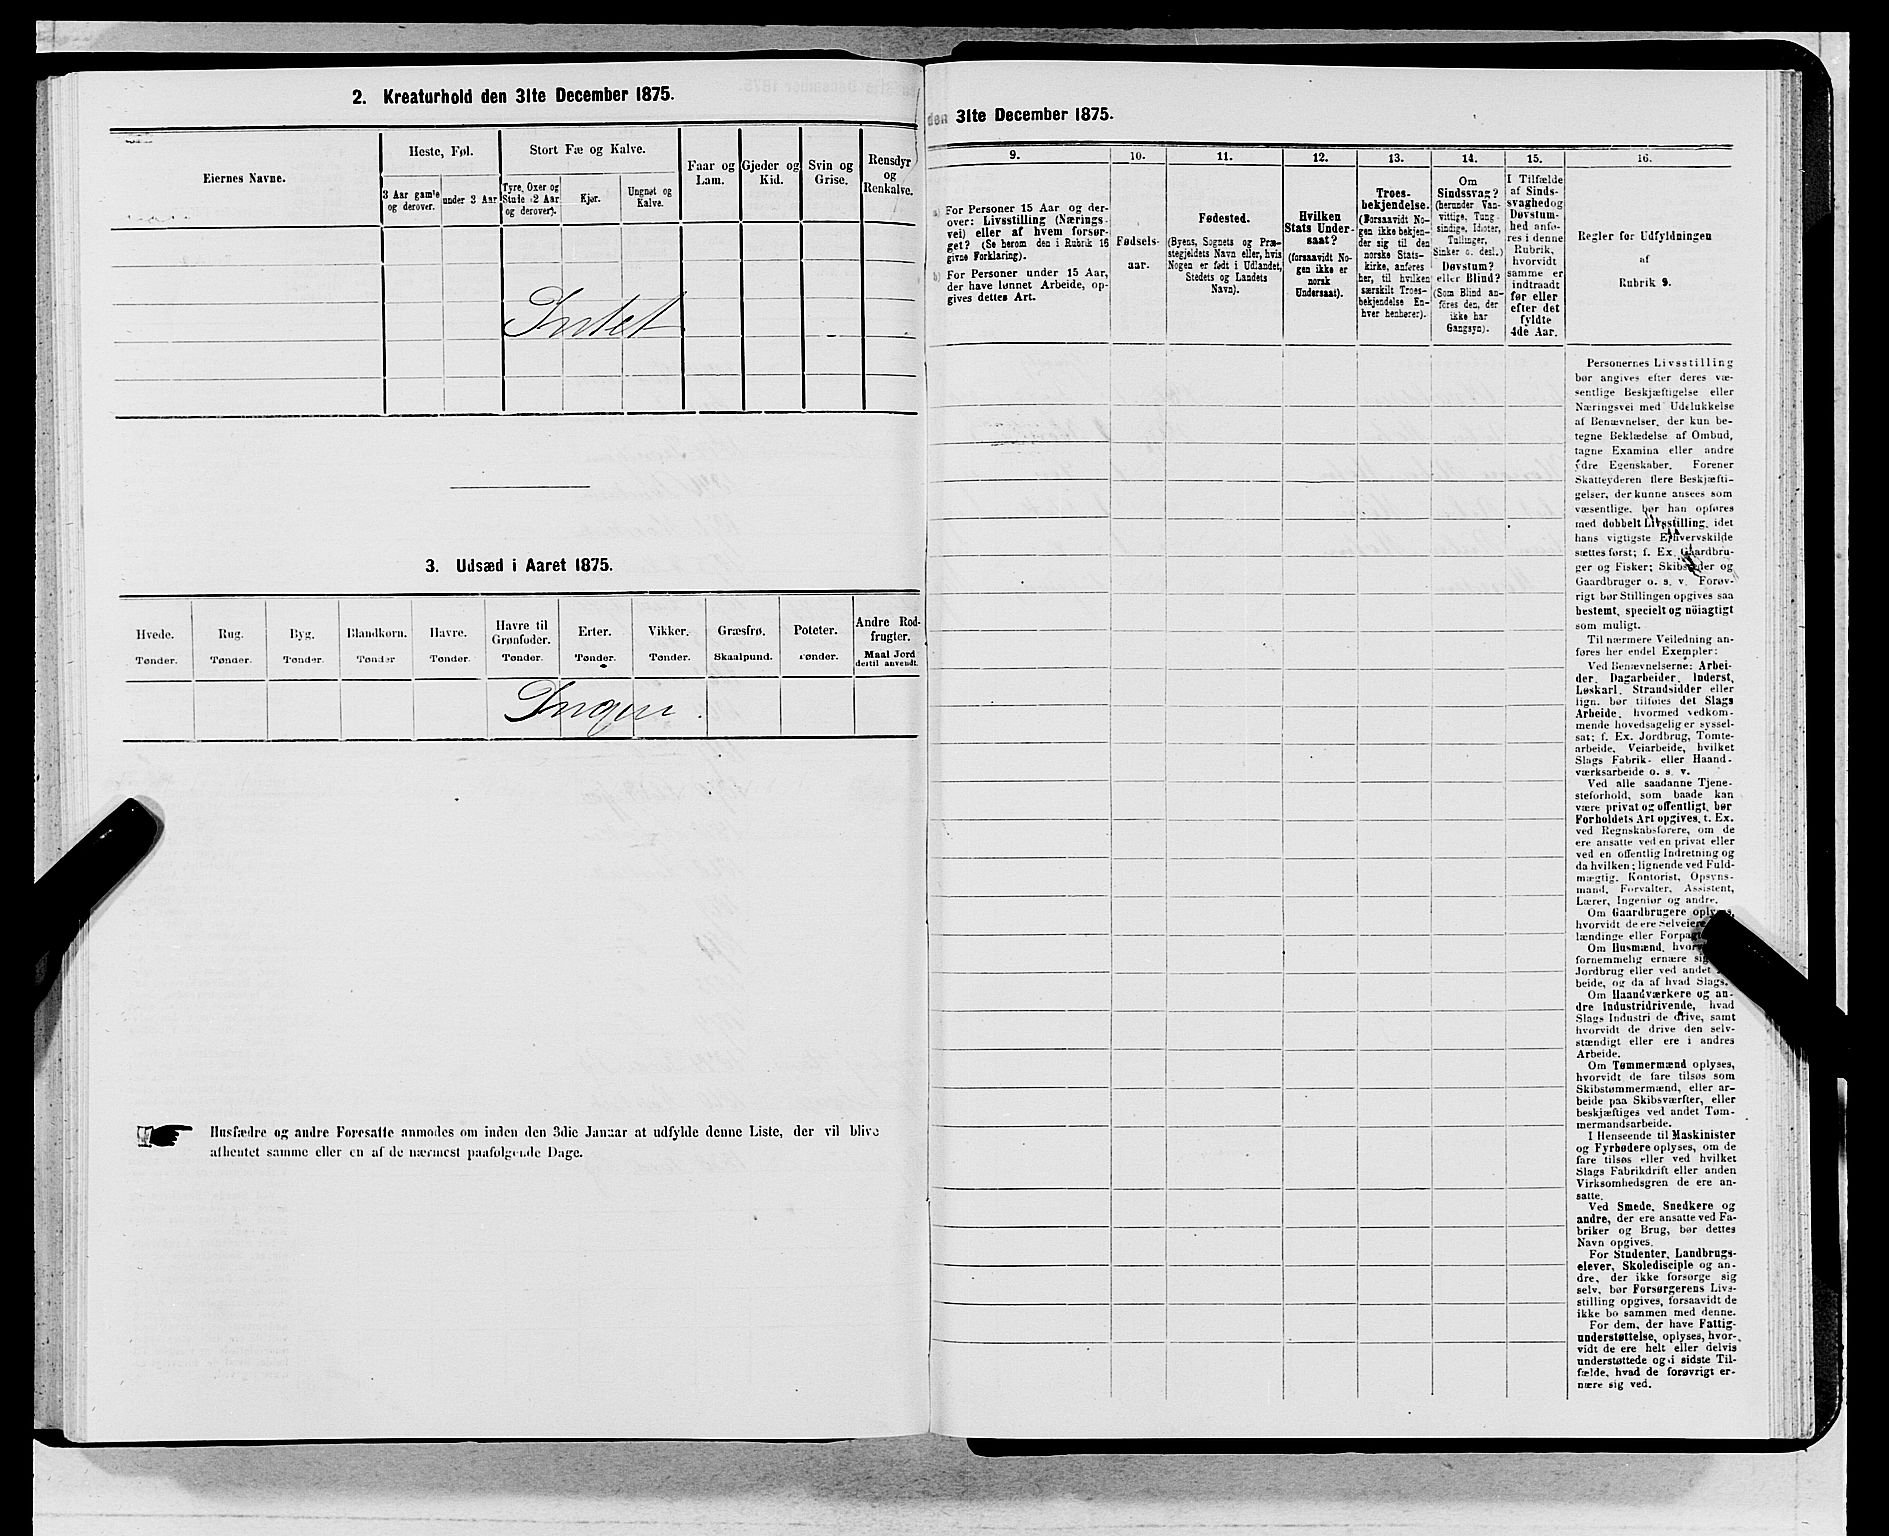 2. Kreaturhold den 31te December 1875.
Eiernes Navne.
Heste, Føl.
Stort Fæ og Kalve.
Faar og
Lam.
Gjeder og
Kid.
Svin og
Grise.
Rensdyr
og
Renkalve.
3 Aar gamle
og derover.
under 3 Aar
Tyre, Oxer og
Stude (2 Aar
og derover).
Kjør.
Ungnøt og
Kalve.
Intet
3. Udsæd i Aaret 1875.
Hvede.
Tønder.
Rug.
Tønder.
Byg.
Tønder.
Blandkorn.
Tønder
Havre.
Tønder.
Havre til
Grønfoder.
Tønder.
Erter.
Tønder.
Vikker.
Tønder.
Græsfrø.
Skaalpund.
Poteter.
Tønder.
Andre Rod-
frugter.
Maal Jord
dertil anvendt.
Ingen
Husfædre og andre Foresatte anmodes om inden den 3die Januar at udfylde denne Liste, der vil blive
afhentet samme eller en af de nærmest paafølgende Dage.
den 31te December 1875.
9.
a) For Personer 15 Aar og der-
over: Livsstilling (Nærings-
vei) eller af hvem forsør-
get? (Se herom den i Rubrik 16
givne Forklaring).
b) For Personer under 15 Aar,
der have lønnet Arbeide, op-
gives dettes Art.
10.
Fødsels-
aar.
11.
Fødested.
(Byens, Sognets og Præ-
stegjeldets Navn eller, hvis
Nogen er født i Udlandet,
Stedets og Landets
Navn).
12.
Hvilken
Stats Under-
saat?
(forsaavidt No-
gen ikke er
norsk
Undersaat).
13.
Troes-
bekjendelse.
(Forsaavidt No-
gen ikke bekjen-
der sig til den
norske Stats-
kirke, anføres
her, til hvilken
særskilt Troes-
bekjendelse En-
hver henhører).
14.
Om
Sindssvag?
(herunder Van-
vittige, Tung-
sindige, Idioter,
Tullinger,
Sinker o. desl.)
Døvstum?
eller Blind?
(Som Blind an-
føres den, der
ikke har
Gangsyn).
15.
I Tilfælde
af Sinds-
svaghed og
Døvstum-
hed anfø-
res i denne
Rubrik,
hvorvidt
samme er
indtraadt
før eller
efter det
fyldte
4de Aar.
16.
Regler for Udfyldningen
af
Rubrik 9.
Personernes Livsstilling
bør angives efter deres væ-
sentlige Beskjæftigelse eller
Næringsvei med Udelukkelse
af Benævnelser, der kun be-
tegne Beklædelse af Ombud,
tagne Examina eller andre
ydre Egenskaber. Forener
Skatteyderen flere Beskjæfti-
gelser, der kunne ansees som
væsentlige, bør han opføres
med dobbelt Livsstilling, idet
hans vigtigste Erhvervskilde
sættes først; f. Ex. Gaardbru-
ger og Fisker; Skibsreder og
Gaardbruger o. s. v. Forøv-
rigt bør Stillingen opgives saa
bestemt, specielt og nøiagtigt
som muligt.
Til nærmere Veiledning an-
føres her endel Exempler:
Ved Benævnelserne: Arbei-
der, Dagarbeider, Inderst,
Løskarl, Strandsidder eller
lign. bør tilføies det Slags
Arbeide, hvormed vedkom-
mende hovedsagelig er syssel-
sat; f. Ex. Jordbrug, Tomte-
arbeide, Veiarbeide, hvilket
Slags Fabrik- eller Haand-
værksarbeide o. s. v.
Ved alle saadanne Tjene-
steforhold, som baade kan
være privat og offentligt, bør
Forholdets Art opgives, t. Ex.
ved Regnskabsførere, om de
ere ansatte ved en privat eller
ved en offentlig Indretning og
da hvilken; lignende ved Fuld-
mægtig, Kontorist, Opsyns-
mand, Forvalter, Assistent,
Lærer, Ingeniør og andre.
Om Gaardbrugere oplyses,
hvorvidt de ere Selveiere,
lændinge eller
Om Husmænd,
fornemmelig ernære sig
Jordbrug eller ved andet
beide, og da af hvad Slags.
Om Haandværkere og an-
dre Industridrivende, hvad
Slags Industri de drive, samt
hvorvidt de drive den selv-
stændigt eller ere i andres
Arbeide.
Om Tømmermænd oplyses,
hvorvidt de fare tilsøs som
Skibstømmermænd, eller ar-
beide paa Skibsværfter, eller
beskjæftiges ved andet Tøm-
mermandsarbeide.
I Henseende til Maskinister
og Fyrbødere oplyses, om de
fare tilsøs eller ved hvilket
Slags Fabrikdrift eller anden
Virksomhedsgren de ere an-
satte.
Ved Smede, Snedkere og
andre, der ere ansatte ved Fa-
briker og Brug, bør dettes
Navn opgives.
For Studenter, Landbrugs-
elever, Skoledisciple og an-
dre, der ikke forsørge sig
selv, bør Forsørgerens Livs-
stilling opgives, forsaavidt de
ikke bo sammen med denne.
For dem, der have Fattig-
understøttelse, oplyses, hvor-
vidt de ere helt eller delvis
understøttede og i sidste Til-
fælde, hvad de forøvrigt er-
nære sig ved.